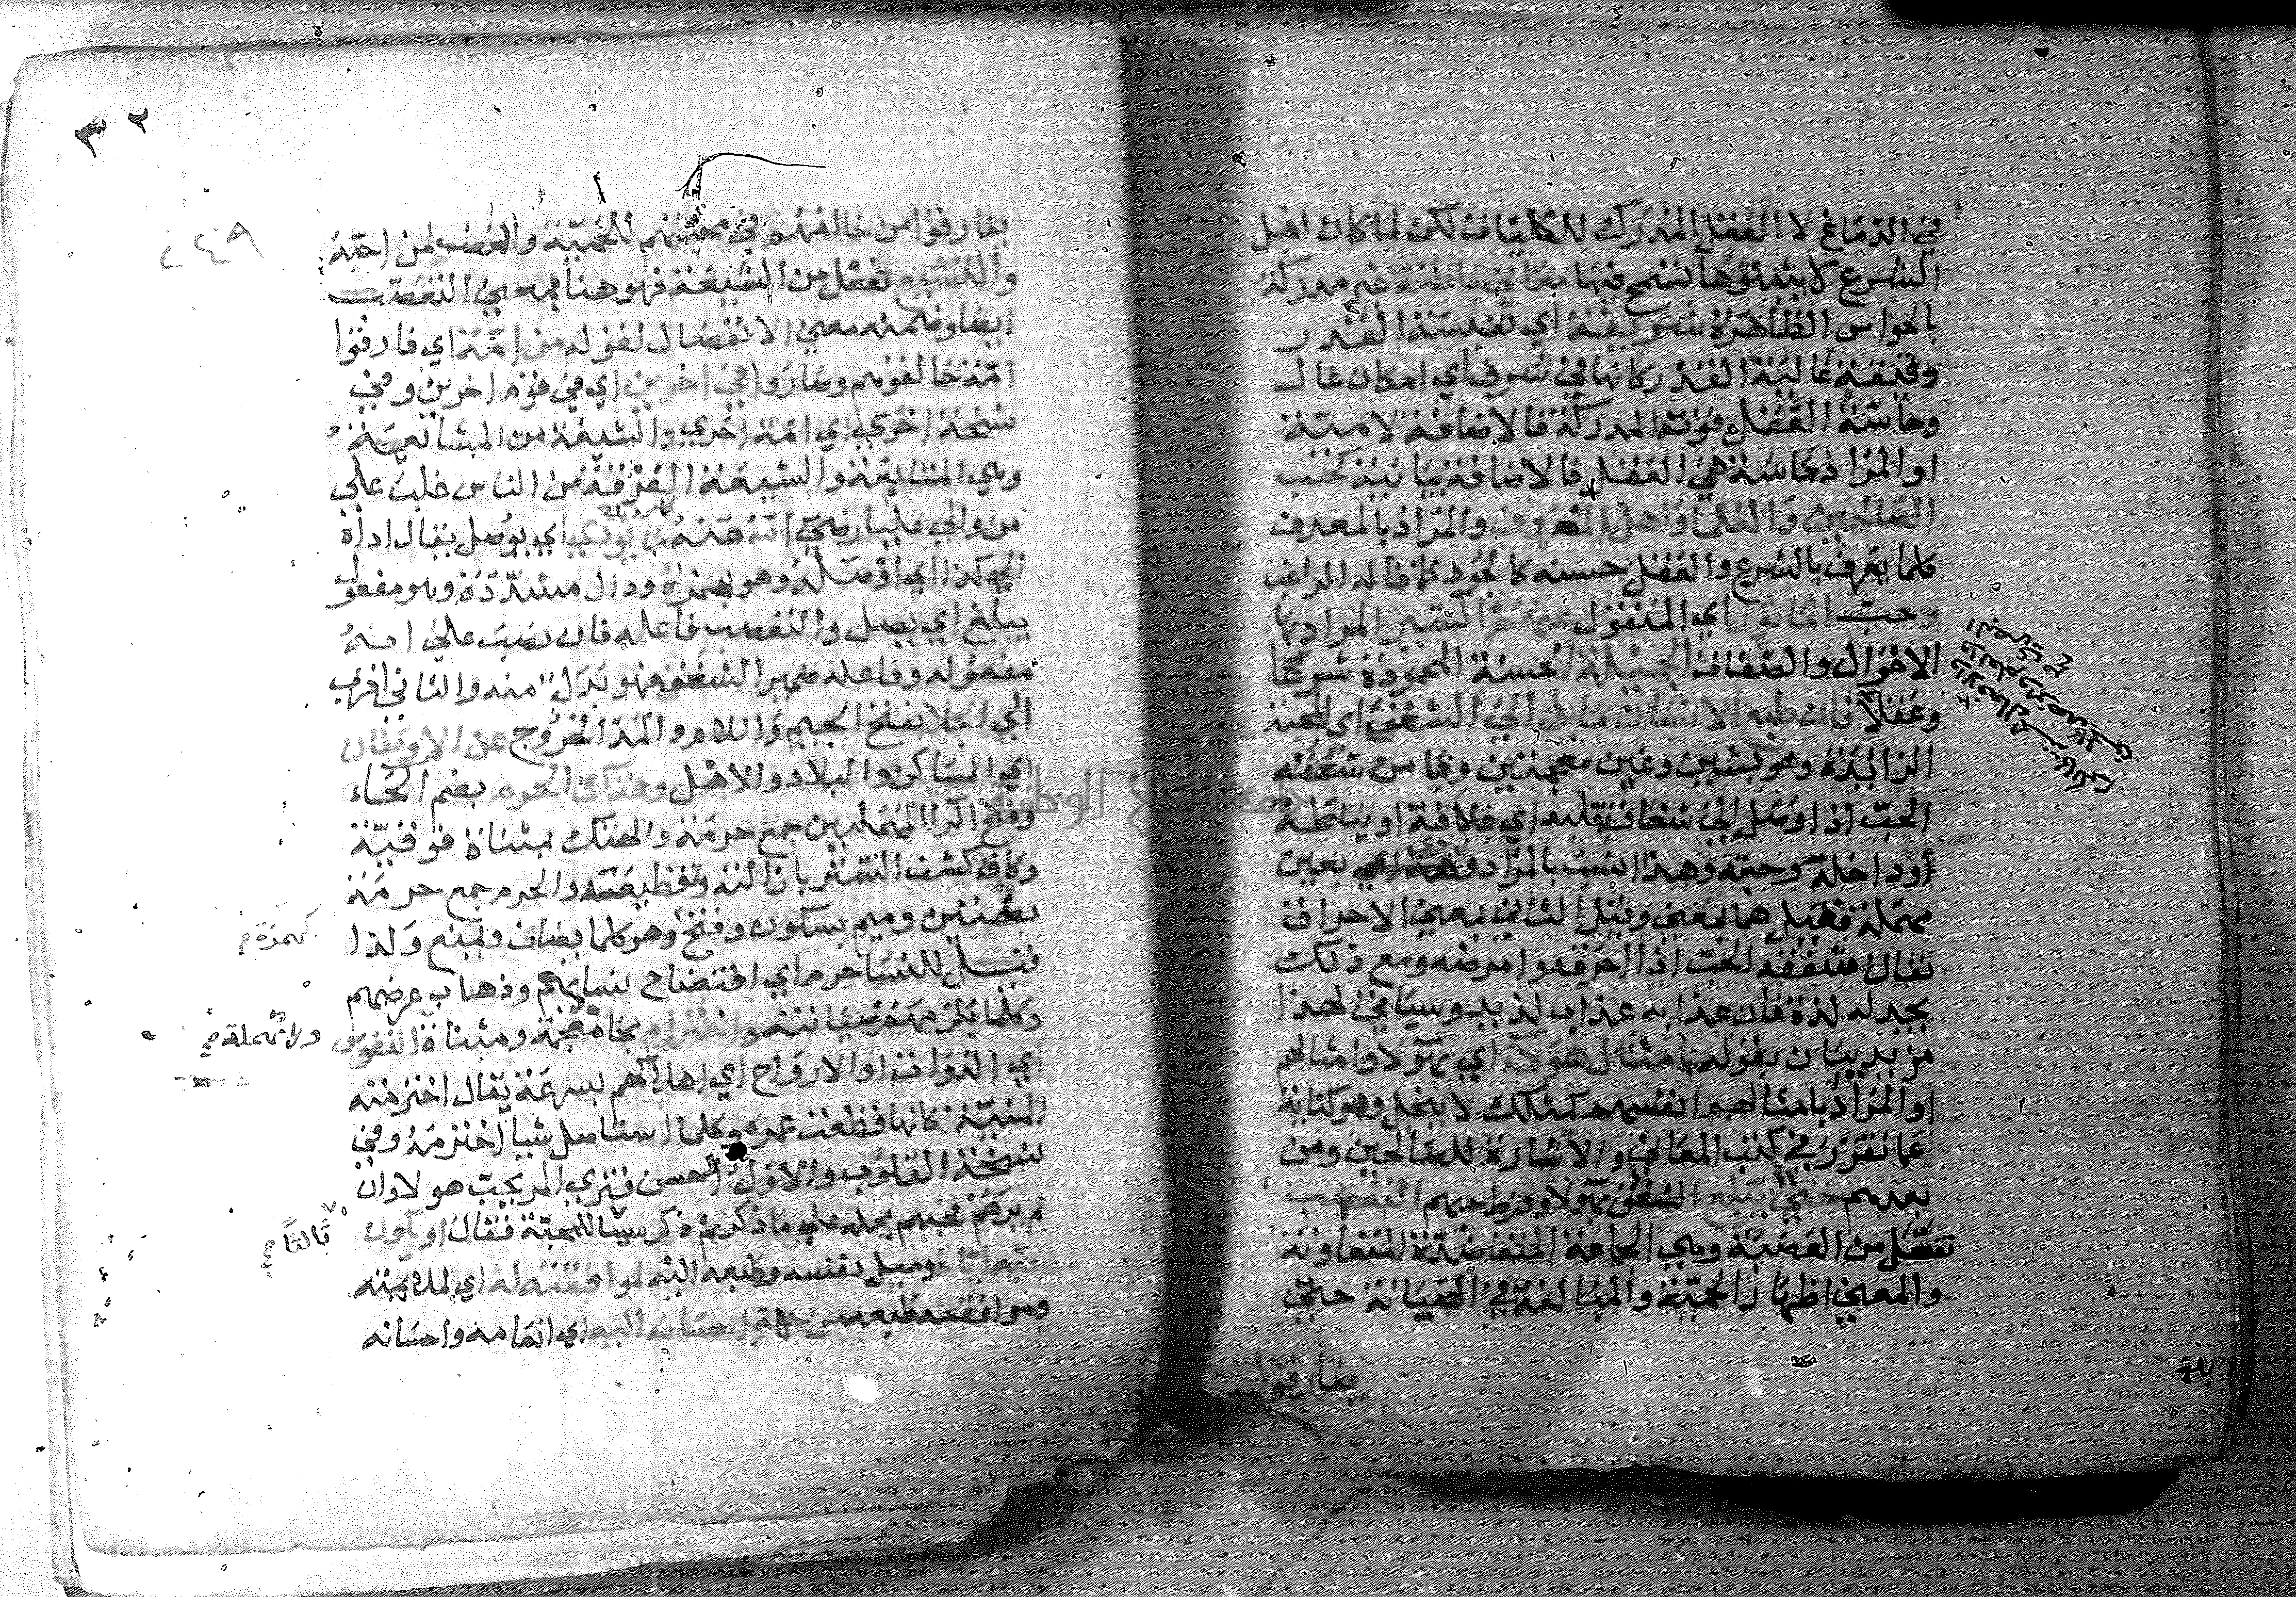 في الدماغ لا العقل المدرك للكليات لكن لما كان اهل
الشرع لا يثبتونها تسمح فيها معاني باطنة غير مدركة
بالحواس الظاهرة شريفة اي نفيسة القدر
وقيقة عالية القدر كانها في شرف اي امكان عال
وحاسة العقل قوته المدركة فالاضافة لامية
او المراد بحاسة هي العقل فالاضافة بيانية كحب
الصالحين والعلما واهل المعروف والمراد بالمعروف
كلما يعرف بالشرع والعقل حسنه كالجود كما قاله الراغب
وحب الماثور اي المنقول عنهم السير المراد بها
الاحوال والصفات الجميلة الحسنة المحمودة شرعا
وعقلا فان طبع الانسان مايل الي الشغف اي المحبة
الزايدة وهو بشين وغين معجمتين وفا من شغفه
الحب اذا وصل الي شغاف قلبه اي غلافه او نياطه
اوداخله وحبته وهذا انسب بالمراد وروي بعين
مهملة فقيل هما بمعني وقيل الثاني بمعني الاحراق
يقال شغفه الحب اذا احرقه وامرضه ومع ذلك
يجد له لذة فان عذابه عذاب لذيد وسياتي لهذا
مزيد بيان بقوله بامثال هولاء اي بهولا وامثالهم
او المراد بامثالهم انفسهم كمثلك لا يبخل وهو كناية
عما تقرر في كتب المعاني والاشارة للصالحين ومن
بعدهم حتي يبلغ الشغف بهولا وفرط حبهم التعصب
تفعل من العصبة وهي الجماعة المتعاضدة المتعاونة
والمعني اظهار المحبة والمبالغة في الصيانة حتي
يفارقوا
٣٢
٢٤٩
يفارقوا من خالفهم في محبتهم للحمية والغضب لمن احبه
والتشيع تفعل من الشيعة فهو هنا بمعني التعصب
ايضا وضمنه معني الانفصال لقوله من امة اي فارقوا
امة خالفوهم وصاروا في اخرين اي في قوم اخرين وفي
نسخة اخري اي امة اخري والشيعة من المشايعة
وهي المتابعة والشيعة الفرقة من الناس غلب علي
من والي عليا رضي الله عنه ما يودي اي يوصل يقال اداه
الي كذا اي اوصله وهو بهمزة ودال مشددة وهو مفعول
يبلغ اي يصل والتعصب فاعله فان نصب علي انه
مفعوله وفاعله ضمير الشغف فهو بدل منه والثاني اقرب
الي الجلا بفتح الجيم واللام والمد الخروج عن الاوطان
اي المساكن والبلاد والاهل وهتك الحرم بضم الحاء
وفتح الرا المهملتين جمع حرمة والهتك بمثناة فوقية
وكاف كشف الستر بازالته وتقطيعه والحرم جمع حرمة
بضمتين وميم بسكون وفتح وهو كلما يصان ويمنع ولذا
قيل للنسا حرم اي افتضاح نسايهم وذهاب عرضهم
وكلما يلزمهم صيانته واخترام بخا معجمة ومثناة النفوس
اي الذوات او الارواح اي اهلاكهم بسرعة يقال اخترمته
المنية كانها قطعت عمره وكلما استاصل شيا اخترمه وفي
نسخة القلوب والاول احسن فتري المر يحب هولا وان
لم يرهم محبهم بحمله علي ما ذكر ثم ذكر سببا للمحبة فقال او يكون
حبه اياه وميل نفسه وطبعه اليه لموافقته له اي لملايمته
وموافقته طبعه من جهة احسانه اليه اي انعامه واحسانه
كهمزة صح
ورا مهملة صح
ثالثا صح
جامعة النجاح الوطنية